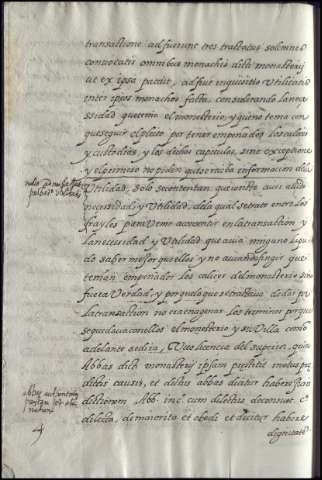 transaltione adfuerunt tres tractatus solemnes
convocatis omnibus monachis dicti monasterij
ut ex ipsa patuit, adfuit inquisitio Utilitatis
inter ipsos monachos facta, considerando la nece
ssidad que tenia el monasterio, y que no tenia con
que seguir el pleito por tener empeñados los calices
y custodias, y los dichos capitulos, sine exceptione
y el permiso no piden que se reciba informacion de la
Utilidad, solo se contentan que conste auer auido
necesidad y Utilidad, de la qual se trato entre los
frayles para venir a consentir en la transaltion y
la necesidad y Utilidad que auia ninguno la pu
do saber mejor que ellos y no auian de fingir que
tenian empeñados los calices del monasterio sino
fuera Verdad, y por que lo que se trataua de dar por
la transaltion no era enagenar los terminos por que
se quedaua con ellos el monasterio y su Villa como
adelante se dira, Vuo licencia del superior, quia
Abbas dicti monasterij ipsam petijt motus pre
dictis causis, et dictus Abbas dictus haberet
Abb. inc. cum dilectus de consue. c.
dilecta, de maiorita et obedi. et dicitur habere
dignitate